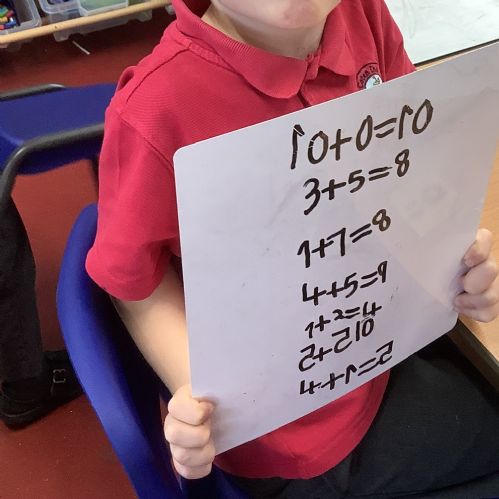 10+0=10
3+5=8
1+7=8
4+5=9
1+2=4
5+510
4+1=5